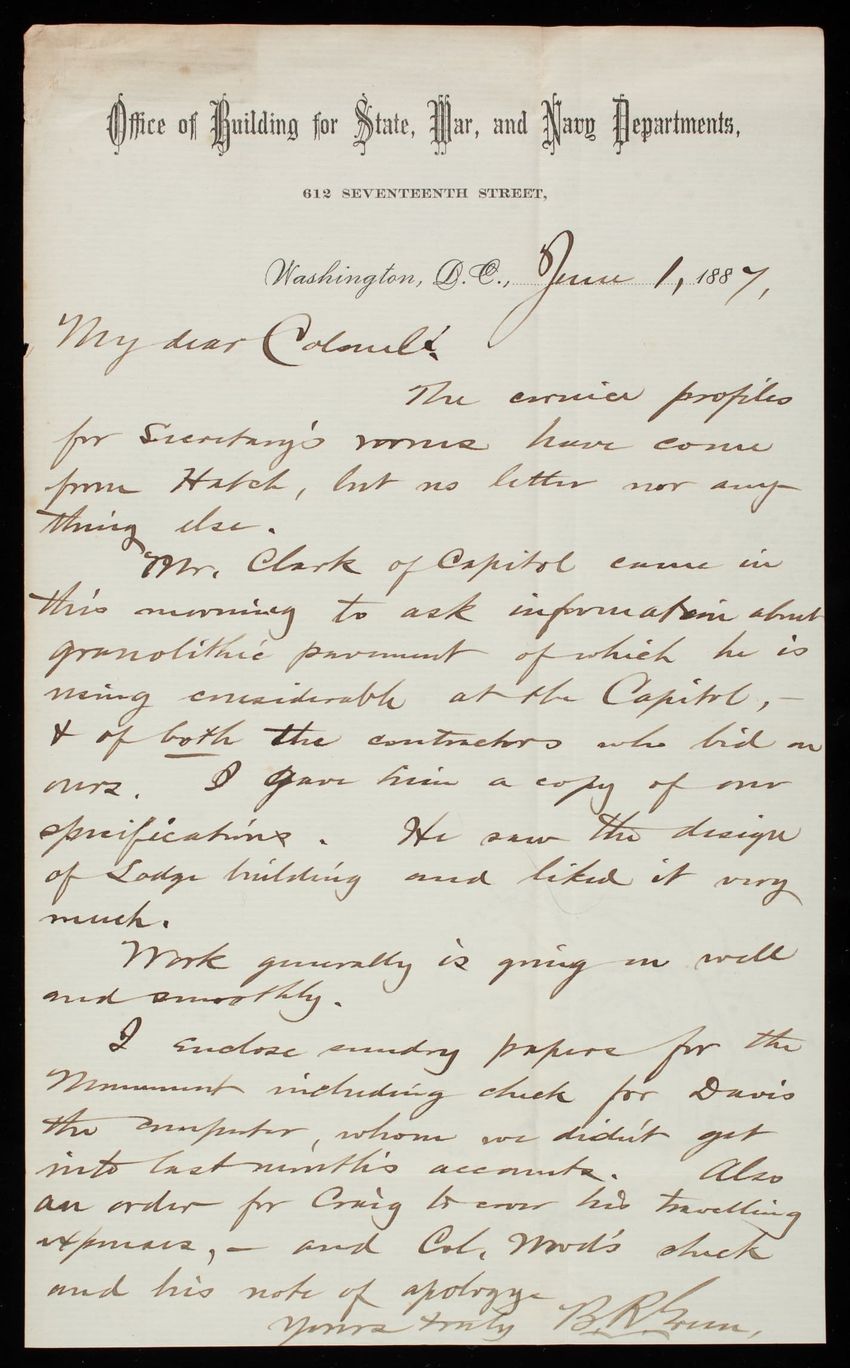 Office of Building for State, War, and Navy Departments,
612 SEVENTEENTH STREET,
Washington, D.C., June 1, 1887,
My dear Colonel:
The cornice profiles
for Secretary's rooms have come
from Hatch, but no letter nor any-
thing else.
Mr. Clark of Capitol came in
this morning to ask information about
granolithic pavement of which he is
using considerable at the Capitol, -
& of both the contractors who bid on
ours. I gave him a copy of our
specifications. He saw the design
of Lodge building and liked it very
much.
Work generally is going on well
and smoothly.
I enclose sundry papers for the
Monument including check for Davis
the computer, whom we didn't get
into last month's accounts. Also
an order for Craig to cover his travelling
expenses, - and Col. Wood's check
and his note of apology.
Yours truly B.R. Green,